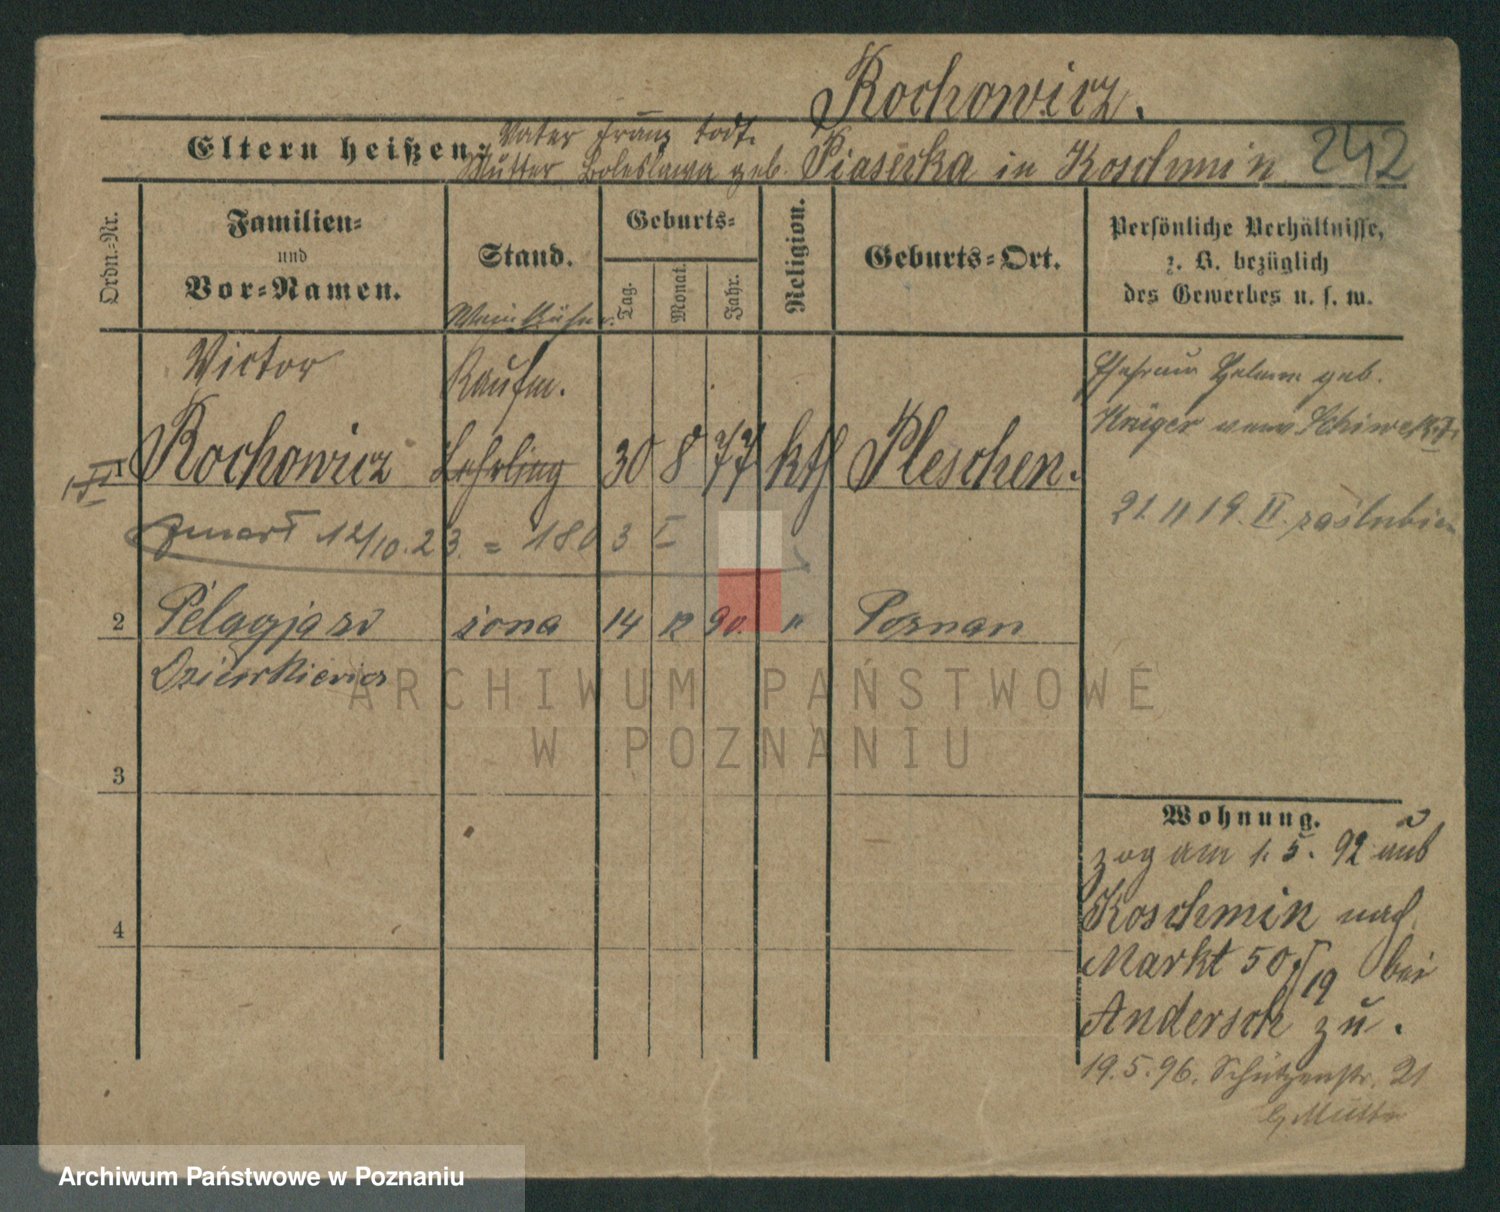 Rochowicz.
Eltern heißen: Vater Franz todt.
Mutter Boleslawa geb. Piasecka in Koschmin 242
Ordn.-Nr.
Familien-
und
Vor-Namen.
Stand.
Geburts-
Tag.
Monat.
Jahr.
Religion.
Geburts-Ort.
Persönliche Verhältnisse,
z. B. bezüglich
des Gewerbes u. s. w.
Victor
Kaufm.
Ehefrau Helene geb.
Krüger
1 Rochowicz Lehrling 30 8 77 kth Pleschen.
21 11 19. II. zaślubien
zmarł 12/10.23. = 1803 I
2 Pelagja zd żona 14 12 90. " Poznan
Dzierkiewicz
3
4
Wohnung.
zog am 1. 5. 92 aus
Koschmin nach
Markt 50 I/19 bei
Andersch zu.
19.5.96. Schützenstr. 21
b/Mutter
ARCHIWUM PAŃSTWOWE
W POZNANIU
Archiwum Państwowe w Poznaniu